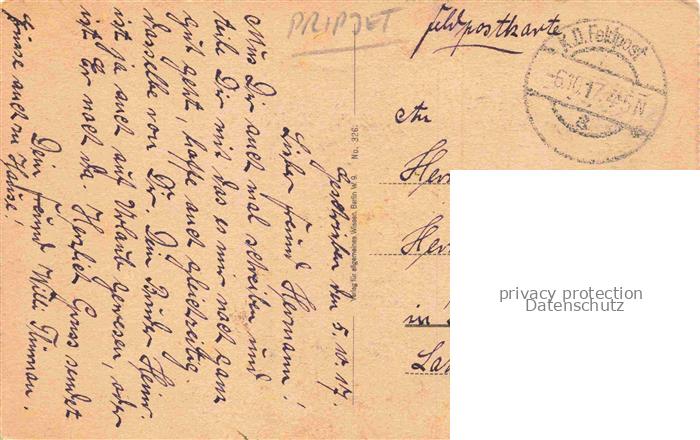 PRIPJET
Feldpostkarte
K.D. Feldpost
-6.10.17.4-5N
a
An
Her
Her
in
La
privacy protection
Datenschutz
Verlag für allgemeines Wissen, Berlin W 9. No. 326.
Geschrieben den 5.10.17.
Lieber Freund Hermann!
Mus Dir auch mal schreiben und
teile Dir mit das es mir noch ganz
gut geht, hoffe auch gleichzeitig
dasselbe von Dir. Dein Bruder Heinr.
ist ja auch auf Urlaub gewesen, oder
ist Er noch da. Herzlich Gruss sendet
Dein Freund Willi
Grüsse auch zu Hause!